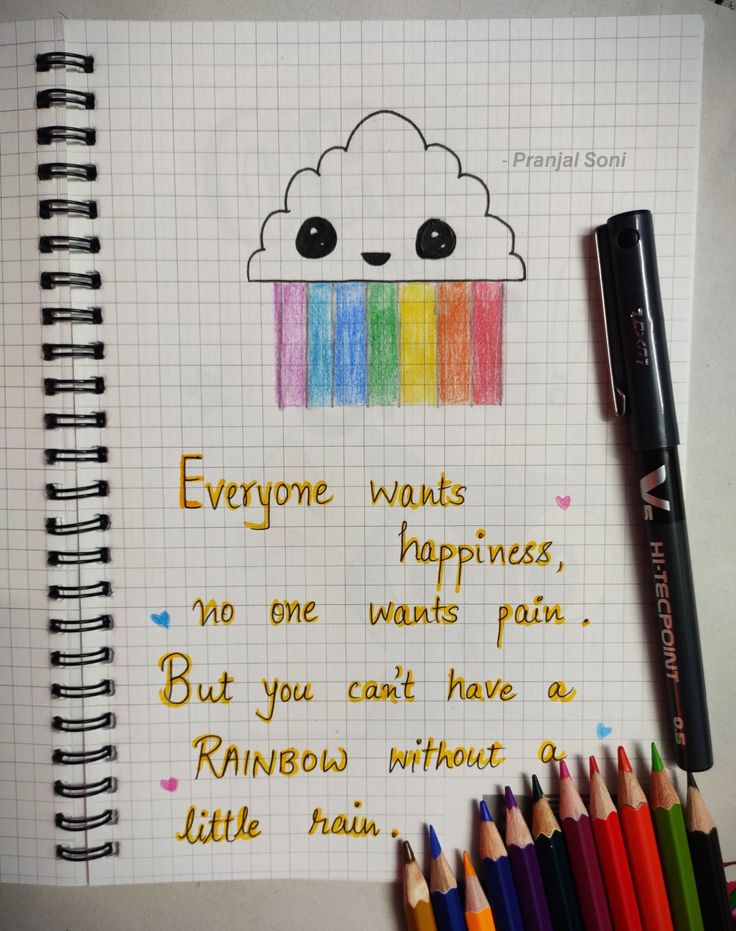 - Pranjal Soni
Everyone wants
happiness,
no one wants pain.
But you can't have a
RAINBOW without a
little rain.
V5
HI-TECPOINT 0.5